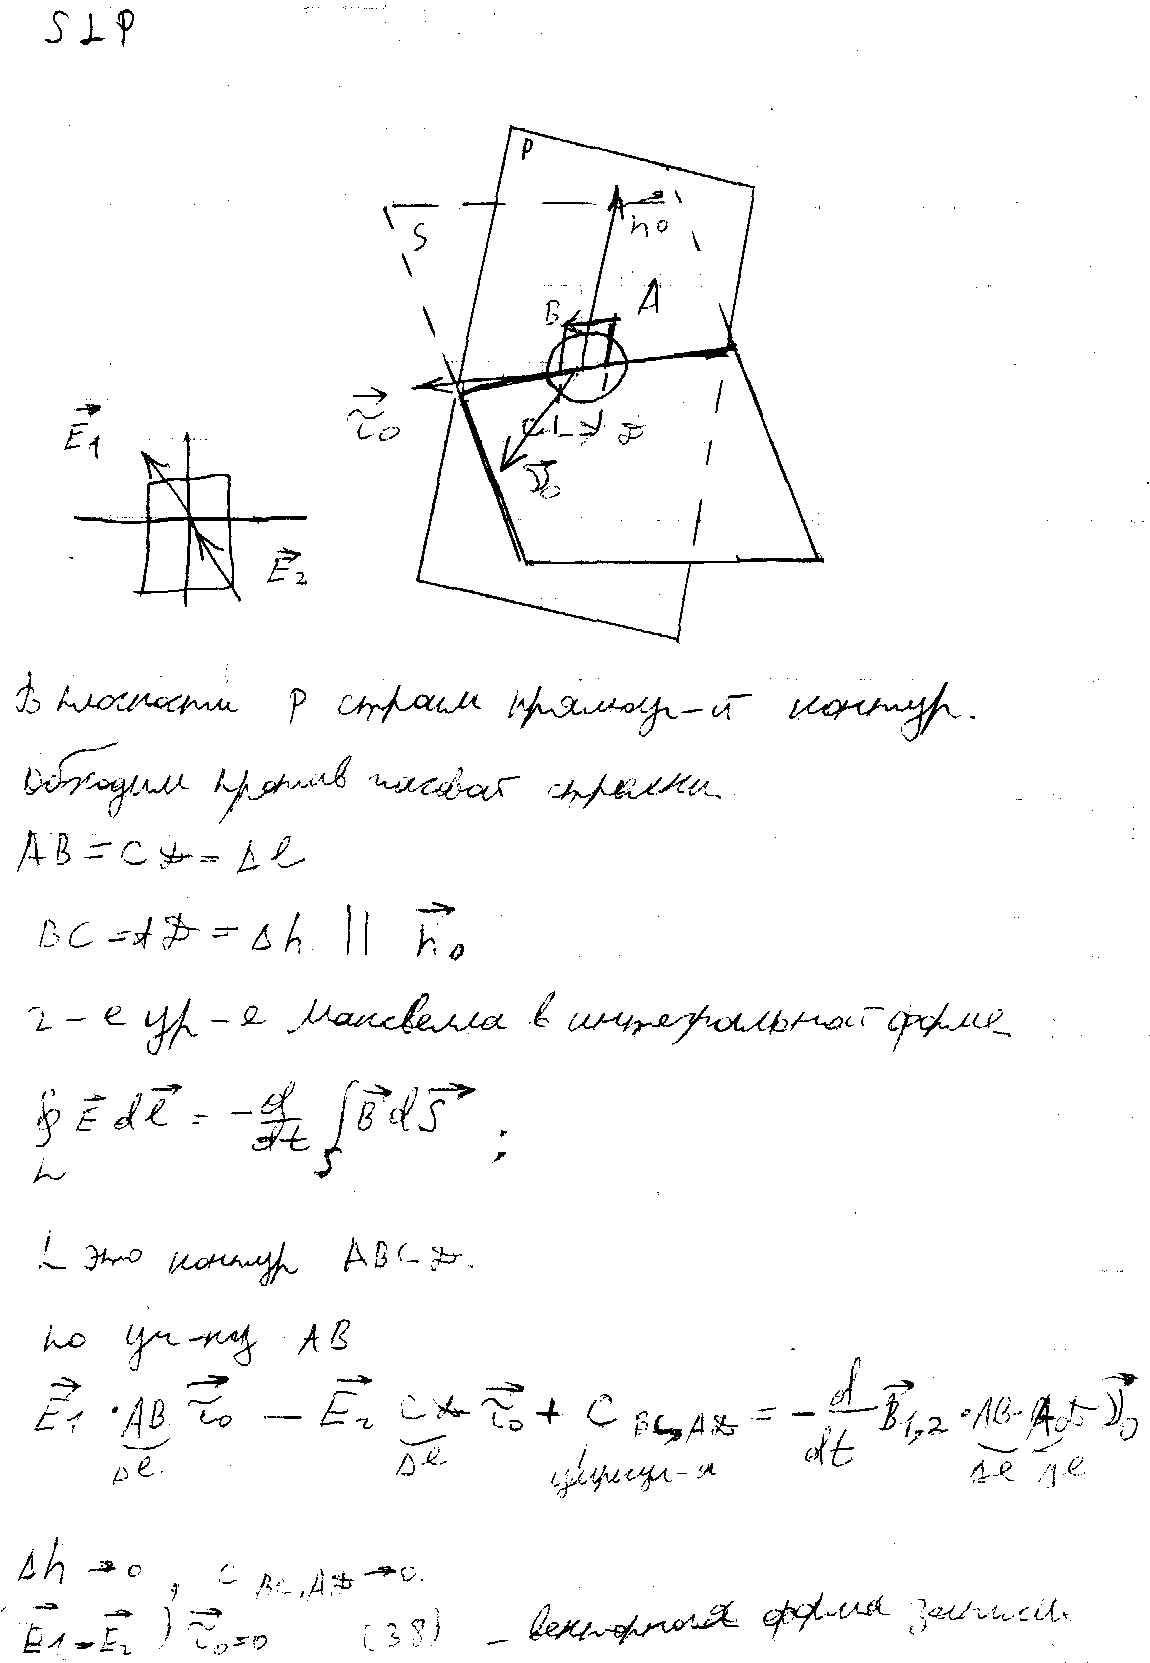 S⊥P
P
S
n⃗0
B
A
τ⃗0
C
D
E⃗1
ν⃗0
E⃗2
В плоскости P строим прямоуг-й контур.
Обходим против часовой стрелки.
AB = CD = Δl
BC = AD = Δh || n⃗0
2-е ур-е Максвелла в интегральной форме
∮L E⃗ dl⃗ = - d/dt ∫S B⃗ dS⃗ ;
L это контур ABCD.
по уч-ку AB
E⃗1 · AB τ⃗0 - E⃗2 CD τ⃗0 + C BC,AD = - d/dt B⃗1,2 · AB · AD ν⃗0
Δl Δl циркул-я Δl Δl
Δh → 0 , C BC,AD → 0.
E⃗1 - E⃗2 ) τ⃗0 = 0 (38) - векторная форма записи